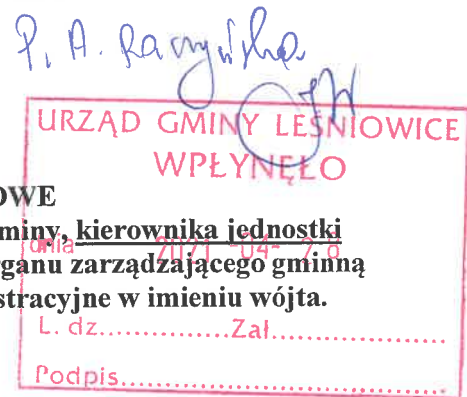 P. A. Raczyńska
URZĄD GMINY LEŚNIOWICE
WPŁYNĘŁO
OWE
miny, kierownika jednostki
dnia 2021 -04- 28
rganu zarządzającego gminną
stracyjne w imieniu wójta.
L. dz..............Zał....................
Podpis.....................................